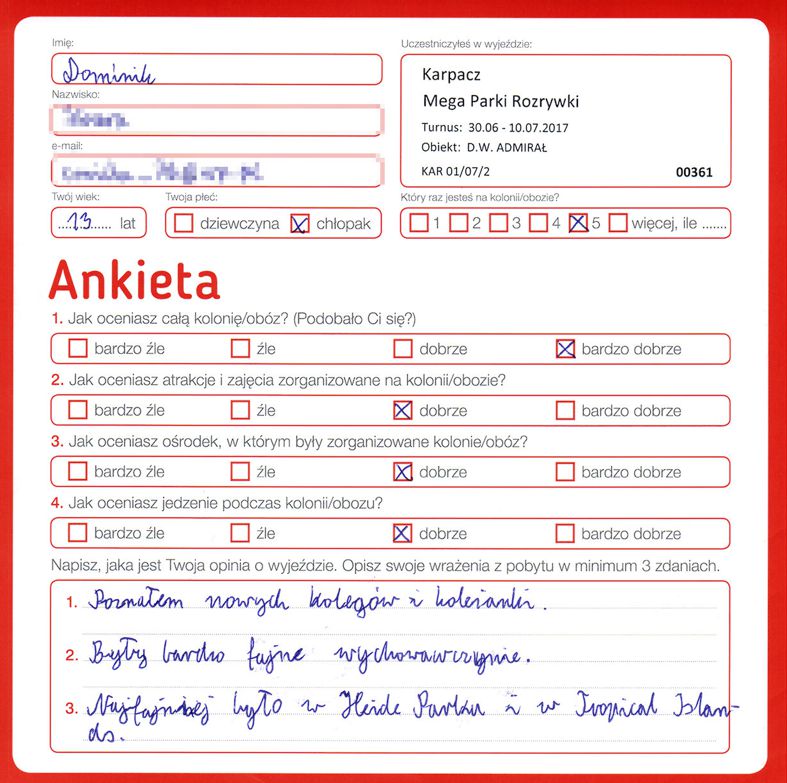 Imię:
Dominik
Nazwisko:
e-mail:
Twój wiek:
....13...... lat
Twoja płeć:
dziewczyna chłopak
Uczestniczyłeś w wyjeździe:
Karpacz
Mega Parki Rozrywki
Turnus: 30.06 - 10.07.2017
Obiekt: D.W. ADMIRAŁ
KAR 01/07/2 00361
Który raz jesteś na kolonii/obozie?
1 2 3 4 5 więcej, ile .......
Ankieta
1. Jak oceniasz całą kolonię/obóz? (Podobało Ci się?)
bardzo źle źle dobrze bardzo dobrze
2. Jak oceniasz atrakcje i zajęcia zorganizowane na kolonii/obozie?
bardzo źle źle dobrze bardzo dobrze
3. Jak oceniasz ośrodek, w którym były zorganizowane kolonie/obóz?
bardzo źle źle dobrze bardzo dobrze
4. Jak oceniasz jedzenie podczas kolonii/obozu?
bardzo źle źle dobrze bardzo dobrze
Napisz, jaka jest Twoja opinia o wyjeździe. Opisz swoje wrażenia z pobytu w minimum 3 zdaniach.
1. Poznałem nowych kolegów i koleżanki.
2. Były bardzo fajne wychowawczynie.
3. Najfajniej było w Heide Parku i w Tropical Islan-
ds.